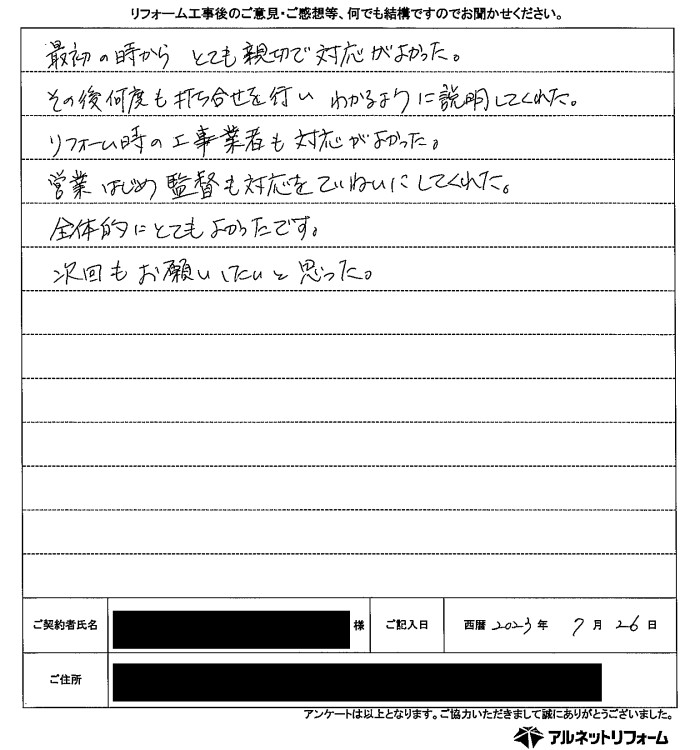 リフォーム工事後のご意見・ご感想等、何でも結構ですのでお聞かせください。
最初の時から とても親切で対応がよかった。
その後何度も打ち合せを行い わかるように説明してくれた。
リフォーム時の工事業者も対応がよかった。
営業はじめ監督も対応をていねいにしてくれた。
全体的にとてもよかったです。
次回もお願いしたいと思った。
ご契約者氏名 様 ご記入日 西暦 2023 年 7 月 26 日
ご住所
アンケートは以上となります。ご協力いただきまして誠にありがとうございました。
アルネットリフォーム